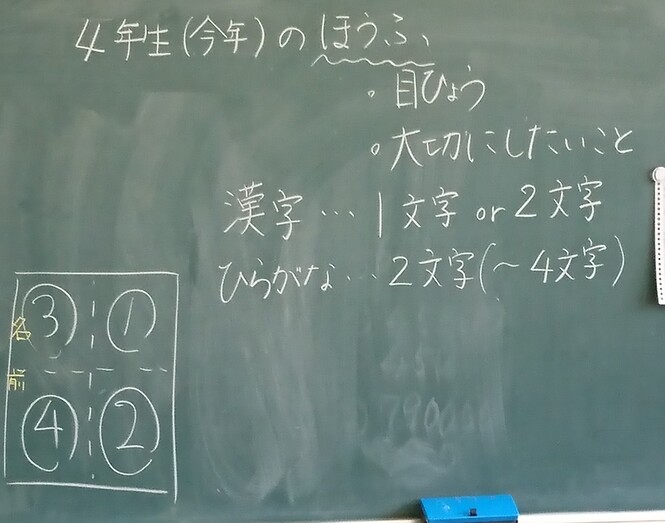 4年生(今年)のほうふ
。目ひょう
。大切にしたいこと
漢字…1文字or2文字
ひらがな…2文字(～4文字)
③ ①
④ ②
名前